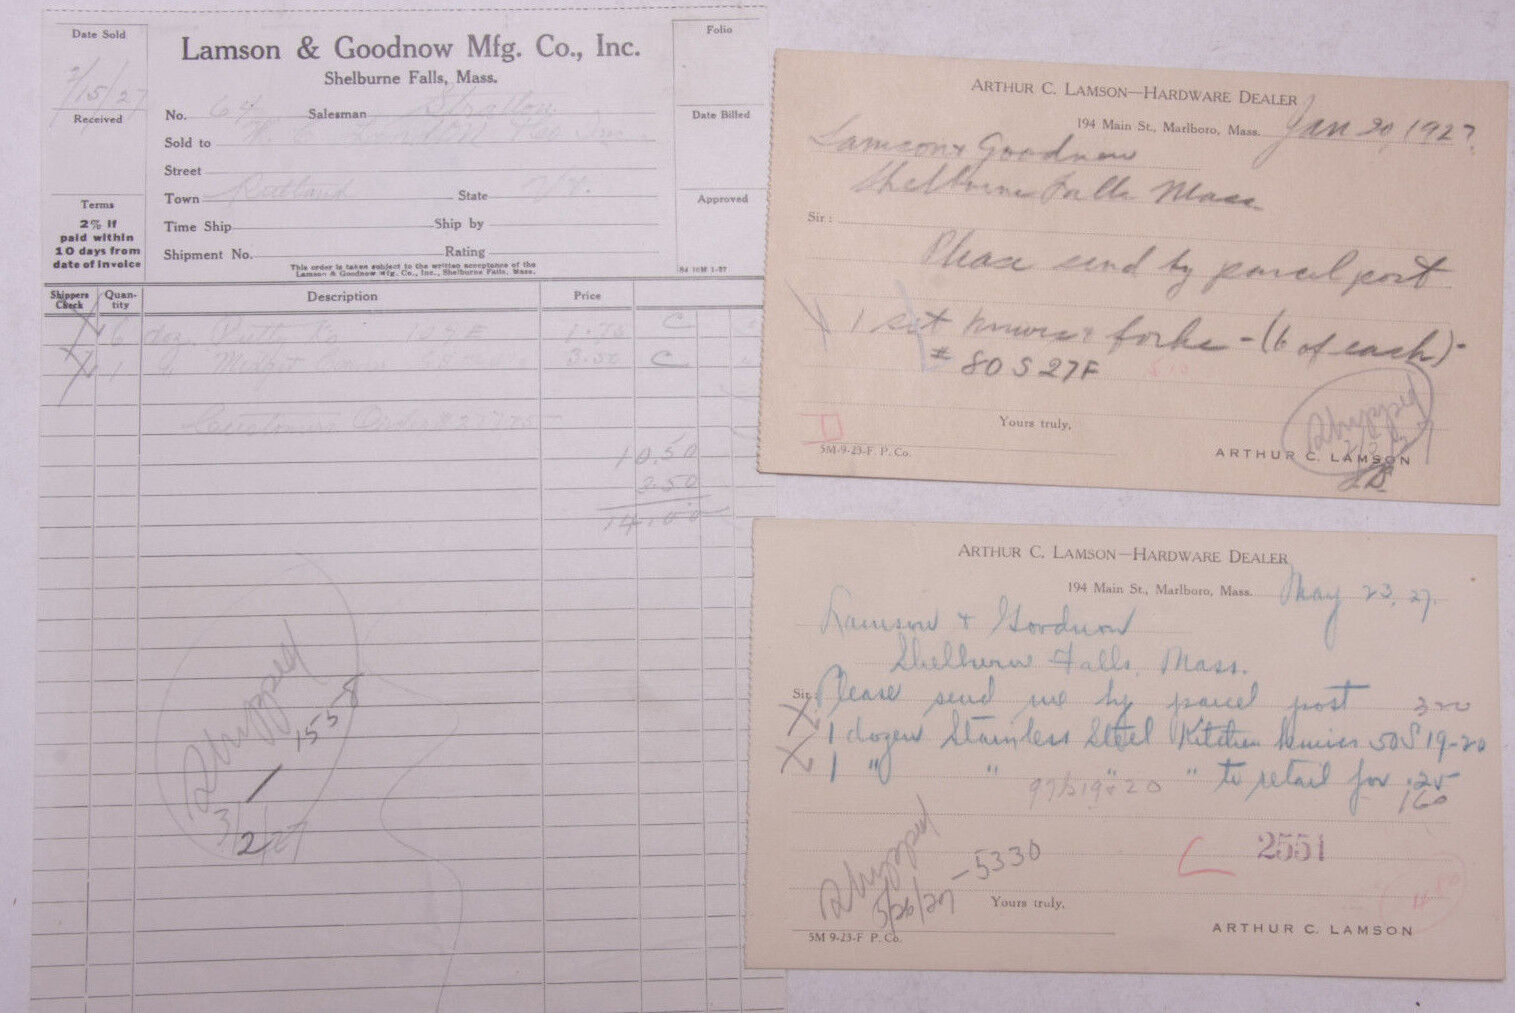 Date Sold
2/15/27
Received
Terms
2% if
paid within
10 days from
date of invoice
Lamson & Goodnow Mfg. Co., Inc.
Shelburne Falls, Mass.
No. 64 Salesman Stratton
Sold to
Street
Town Rutland State Vt.
Time Ship Ship by
Shipment No. Rating
This order is taken subject to the written acceptance of the
Lamson & Goodnow Mfg. Co., Inc., Shelburne Falls, Mass.
Folio
Date Billed
Approved
S4 10M 1-27
Shippers Check Quantity Description Price
X 6 doz. 1.75 C
X 1 " 3.50 C
Customers Order # 27175
10.50
3.50
14.00
Shipped
1558
3/2/27
ARTHUR C. LAMSON—HARDWARE DEALER
194 Main St., Marlboro, Mass. Jan 20, 1927.
Lamson & Goodnow
Shelburne Falls Mass
Sir:
Please send by parcel post
1 set knives & forks - (6 of each) -
# 80 S 27F
Shipped
Yours truly,
5M-9-23-F. P. Co.
ARTHUR C. LAMSON
ARTHUR C. LAMSON—HARDWARE DEALER
194 Main St., Marlboro, Mass. May 23, 27.
Lamson & Goodnow
Shelburne Falls, Mass.
Sir: Please send me by parcel post 320
X 1 dozen Stainless Steel Kitchen knives 50S 19-20
X 1 " " " " to retail for .25
97S19-20 160
2551
Shipped
5/26/27 - 5330
Yours truly,
5M 9-23-F P. Co.
ARTHUR C. LAMSON